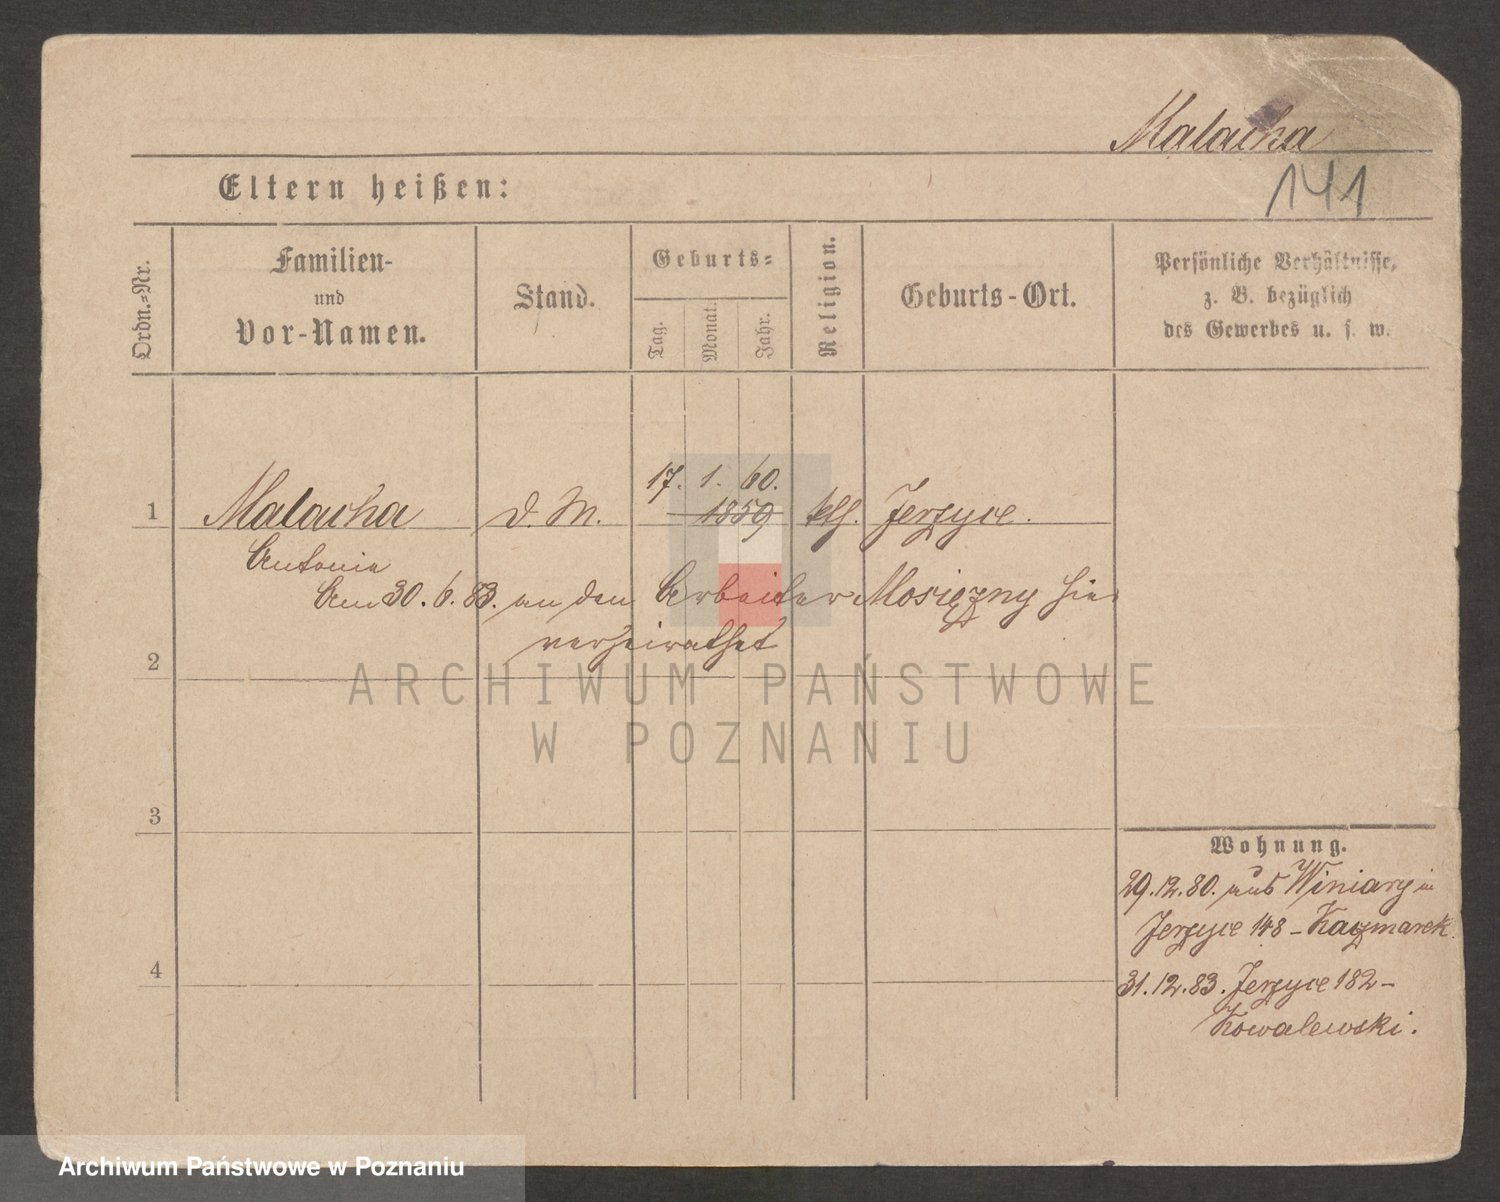 Malacha
141
Eltern heißen:
Ordn.=Nr.
Familien-
und
Vor-Namen.
Stand.
Geburts=
Tag.
Monat.
Jahr.
Religion.
Geburts-Ort.
Persönliche Verhältnisse,
z. B. bezüglich
des Gewerbes u. s. w.
17. 1. 60.
1 Malacha d. M. 1859 kth. Jerzyce.
Antonie
Am 30. 6. 83. an den Arbeiter Mosiężny hier
verheirathet
2
ARCHIWUM PAŃSTWOWE
W POZNANIU
3
Wohnung.
29.12.80. aus Winiary in
Jerzyce 148 - Kaczmarek.
4
31.12.83. Jerzyce 182 -
Kowalewski.
Archiwum Państwowe w Poznaniu